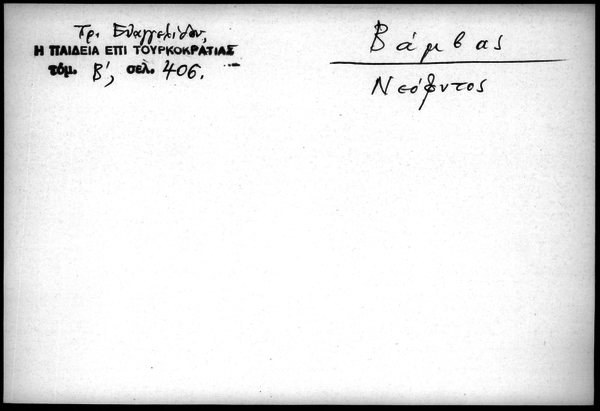 Τρ. Ευαγγελίδου,
Η ΠΑΙΔΕΙΑ ΕΠΙ ΤΟΥΡΚΟΚΡΑΤΙΑΣ
τόμ. Β', σελ. 406.
Βάμβας
Νεόφυτος